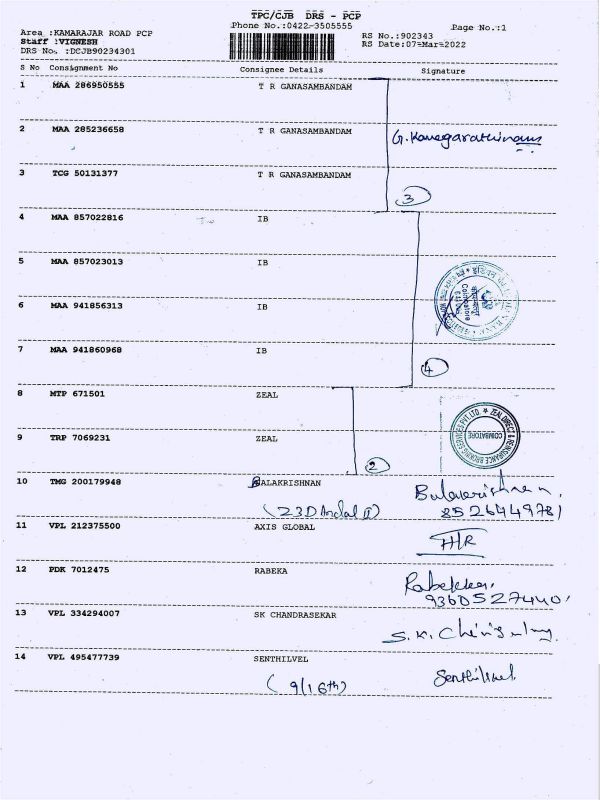 TPC/CJB DRS - PCP
Phone No.:0422-3505555
Page No.:1
Area :KAMARAJAR ROAD PCP
Staff :VIGNESH
DRS No. :DCJB90234301
RS No.:902343
RS Date:07-Mar-2022
S No Consignment No Consignee Details Signature
1 MAA 286950555 T R GANASAMBANDAM
2 MAA 285236658 T R GANASAMBANDAM
G. Kanagarathinam
3 TCG 50131377 T R GANASAMBANDAM
3
4 MAA 857022816 IB
5 MAA 857023013 IB
6 MAA 941856313 IB
7 MAA 941860968 IB
4
8 MTP 671501 ZEAL
9 TRP 7069231 ZEAL
ZEAL DIRECT & REINSURANCE BROKING SERVICES PVT. LTD.
COIMBATORE
2
10 TMG 200179948 BALAKRISHNAN
Balakrishnan.
8526449781
11 VPL 212375500 AXIS GLOBAL
12 PDK 7012475 RABEKA
9360527440
13 VPL 334294007 SK CHANDRASEKAR
14 VPL 495477739 SENTHILVEL
Senthilvel
(9/16th)